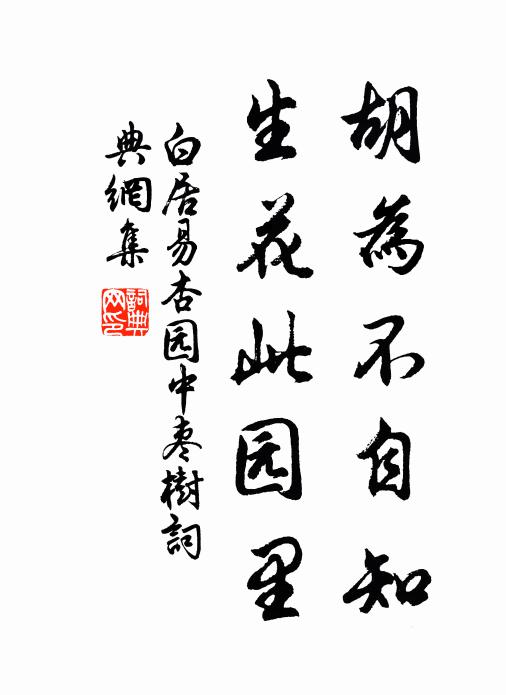 胡為不自知
生花此园里
白居易杏园中枣樹詞
典網集
詞典網印